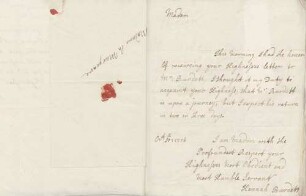 Madam
This morning I had the honour
of receiving your Highnesses letter to
Mr Burdett I thought it my Duty to
acquaint your Highness that Mr Burdett
is upon a journey, but I expect his return
in two or three days
I am Madam with the
Profoundest Respect your
Highnesses most Obedient and
most Humble Servant
Hannah Burdett